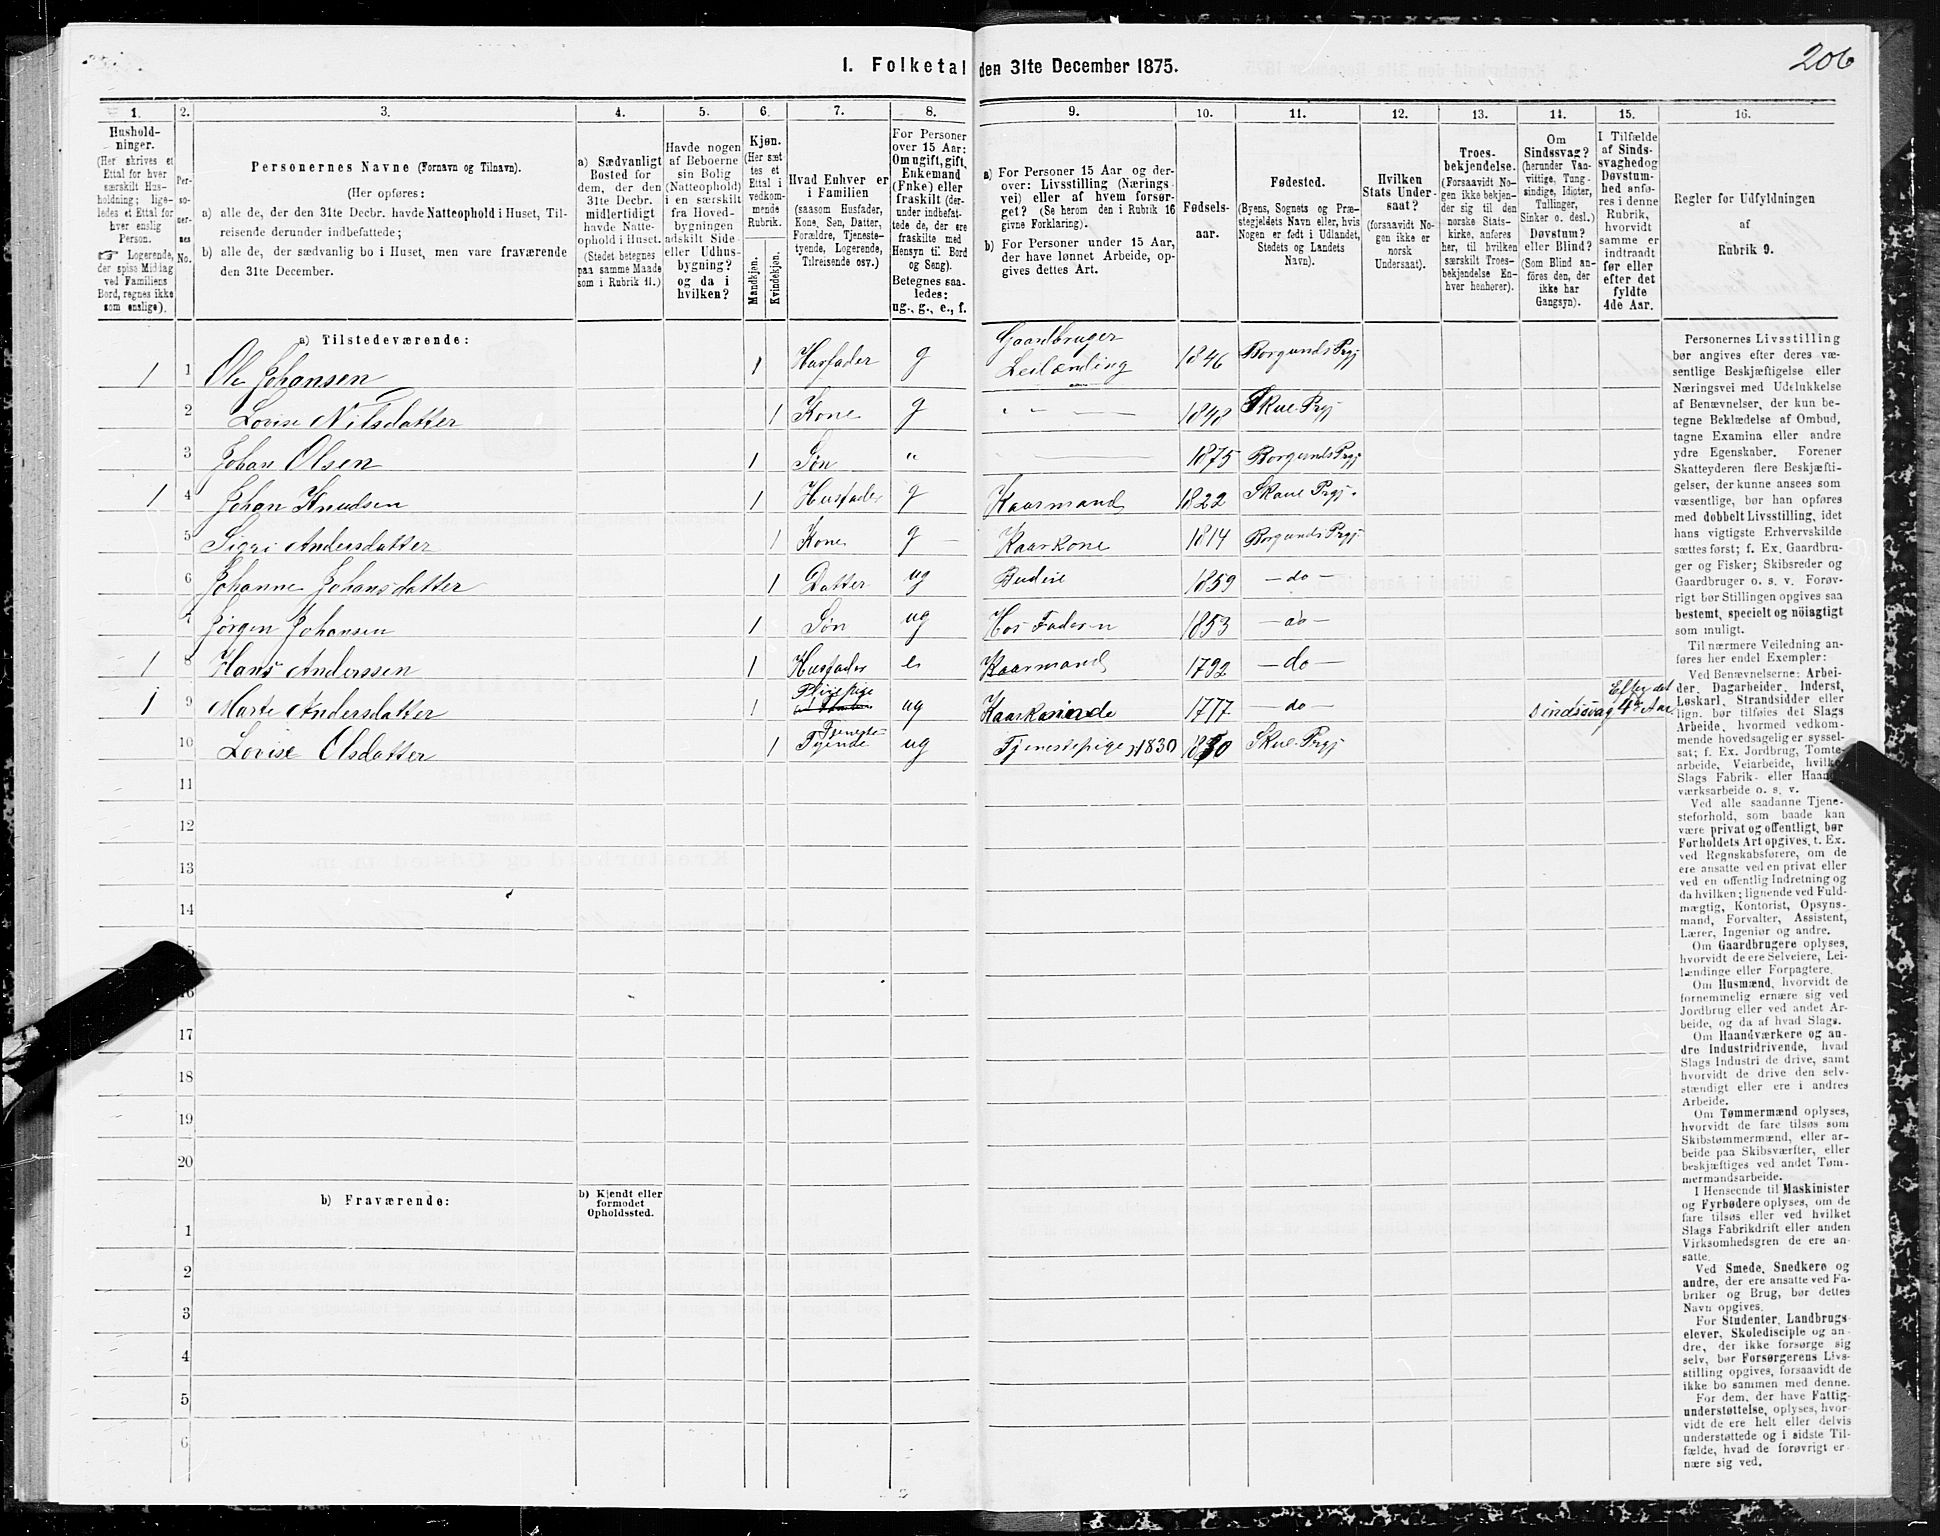 206
1. Folketal den 31te December 1875.
1. 2. 3. 4. 5. 6. 7. 8. 9. 10. 11. 12. 13. 14. 15. 16.
Hushold-
ninger.
(Her skrives et
Ettal for hver
særskilt Hus-
holdning; lige-
ledes et Ettal for
hver enslig
Person.
☞ Logerende,
der spise Middag
ved Familiens
Bord, regnes ikke
som enslige).
Per-
so-
ner-
nes
No.
Personernes Navne (Fornavn og Tilnavn).
(Her opføres:
a) alle de, der den 31te Decbr. havde Natteophold i Huset, Til-
reisende derunder indbefattede;
b) alle de, der sædvanlig bo i Huset, men vare fraværende
den 31te December.
a) Sædvanligt
Bosted for
dem, der den
31te Decbr.
midlertidigt
havde Natte-
ophold i Huset.
(Stedet betegnes
paa samme Maade
som i Rubrik 11.)
Havde nogen
af Beboerne
sin Bolig
(Natteophold)
i en særskilt
fra Hoved-
bygningen
adskilt Side-
eller Udhus-
bygning?
og da i
hvilken?
Kjøn.
(Her sæt
tes et
Ettal i
vedkom-
mende
Rubrik.
Mandkjøn.
Kvindekjøn.
Hvad Enhver er
i Familien
(saasom Husfader,
Kone, Søn, Datter,
Forældre, Tjeneste-
tyende, Logerende,
Tilreisende osv.)
For Personer
over 15 Aar:
Om ugift, gift,
Enkemand
(Enke) eller
fraskilt (der-
under indbefat-
tede de, der ere
fraskilte med
Hensyn til Bord
og Seng).
Betegnes saa-
ledes:
ug., g., e., f.
a) For Personer 15 Aar og der-
over: Livsstilling (Nærings-
vei) eller af hvem forsør-
get? (Se herom den i Rubrik 16
givne Forklaring).
b) For Personer under 15 Aar,
der have lønnet Arbeide, op-
gives dettes Art.
Fødsels-
aar.
Fødested.
(Byens, Sognets og Præ-
stegjeldets Navn eller, hvis
Nogen er født i Udlandet,
Stedets og Landets
Navn).
Hvilken
Stats Under-
saat?
(forsaavidt No-
gen ikke er
norsk
Undersaat).
Troes-
bekjendelse.
(Forsaavidt No-
gen ikke bekjen-
der sig til den
norske Stats-
kirke, anføres
her, til hvilken
særskilt Troes-
bekjendelse En-
hver henhører).
Om
Sindssvag?
(herunder Van-
vittige, Tung-
sindige, Idioter,
Tullinger,
Sinker o. desl.)
Døvstum?
eller Blind?
(Som Blind an-
føres den, der
ikke har
Gangsyn).
I Tilfælde
af Sinds-
svaghed og
Døvstum-
hed anfø-
res i denne
Rubrik,
hvorvidt
samme er
indtraadt
før eller
efter det
fyldte
4de Aar.
Regler for Udfyldningen
af
Rubrik 9.
a) Tilstedeværende:
1 1 Ole Johansen 1 Husfader g Gaardbruger Leilænding 1846 Borgunds Prgj
2 Lovise Nilsdatter 1 Kone g " - — 1848 Skue Prgj
3 Johan Olsen 1 Søn " — 1875 Borgunds Prgj
1 4 Johan Knudsen 1 Husfader g Kaarmand 1822 Skaue Prgj.
5 Sigri Andersdatter 1 Kone g — Kaarkone 1814 Borgunds Prgj
6 Johanne Johansdatter 1 Datter ug Budeie 1859 — do —
7 Jørgen Johansen 1 Søn ug Hos Faderen 1853 — do —
1 8 Hans Anderssen 1 Husfader e Kaarmand 1792 — do —
1 9 Marte Andersdatter 1 Pleiepige ug Kaarkvinde 1777 — do — Sindssvag Efter det 4de Aar
10 Lovise Olsdatter 1 Tjeneste-Tyende ug Tjenestepige 1830 1830 Skue Prgj
11
12
13
14
15
16
17
18
19
20
b) Fraværende:
b) Kjendt eller
formodet
Opholdssted.
1
2
3
4
5
6
Personernes Livsstilling
bør angives efter deres væ-
sentlige Beskjæftigelse eller
Næringsvei med Udelukkelse
af Benævnelser, der kun be-
tegne Beklædelse af Ombud,
tagne Examina eller andre
ydre Egenskaber. Forener
Skatteyderen flere Beskjæfti-
gelser, der kunne ansees som
væsentlige, bør han opføres
med dobbelt Livsstilling, idet
hans vigtigste Erhvervskilde
sættes først; f. Ex. Gaardbru-
ger og Fisker; Skibsreder og
Gaardbruger o. s. v. Forøv-
rigt bør Stillingen opgives saa
bestemt, specielt og nøiagtigt
som muligt.
Til nærmere Veiledning an-
føres her endel Exempler:
Ved Benævnelserne: Arbei-
der, Dagarbeider, Inderst,
Løskarl, Strandsidder eller
lign. bør tilføies det Slags
Arbeide, hvormed vedkom-
mende hovedsagelig er syssel-
sat; f. Ex. Jordbrug, Tomte-
arbeide, Veiarbeide, hvilket
Slags Fabrik- eller Haand-
værksarbeide o. s. v.
Ved alle saadanne Tjene-
steforhold, som baade kan
være privat og offentligt, bør
Forholdets Art opgives, t. Ex.
ved Regnskabsførere, om de
ere ansatte ved en privat eller
ved en offentlig Indretning og
da hvilken; lignende ved Fuld-
mægtig, Kontorist, Opsyns-
mand, Forvalter, Assistent,
Lærer, Ingeniør og andre.
Om Gaardbrugere oplyses,
hvorvidt de ere Selveiere, Lei-
lændinge eller Forpagtere.
Om Husmænd, hvorvidt de
fornemmelig ernære sig ved
Jordbrug eller ved andet Ar-
beide, og da af hvad Slags.
Om Haandværkere og an-
dre Industridrivende, hvad
Slags Industri de drive, samt
hvorvidt de drive den selv-
stændigt eller ere i andres
Arbeide.
Om Tømmermænd oplyses,
hvorvidt de fare tilsøs som
Skibstømmermænd, eller ar-
beide paa Skibsværfter, eller
beskjæftiges ved andet Tøm-
mermandsarbeide.
I Henseende til Maskinister
og Fyrbødere oplyses, om de
fare tilsøs eller ved hvilket
Slags Fabrikdrift eller anden
Virksomhedsgren de ere an-
satte.
Ved Smede, Snedkere og
andre, der ere ansatte ved Fa-
briker og Brug, bør dettes
Navn opgives.
For Studenter, Landbrugs-
elever, Skoledisciple og an-
dre, der ikke forsørge sig
selv, bør Forsørgerens Livs-
stilling opgives, forsaavidt de
ikke bo sammen med denne.
For dem, der have Fattig-
understøttelse, oplyses, hvor-
vidt de ere helt eller delvis
understøttede og i sidste Til-
fælde, hvad de forøvrigt er-
nære sig ved.